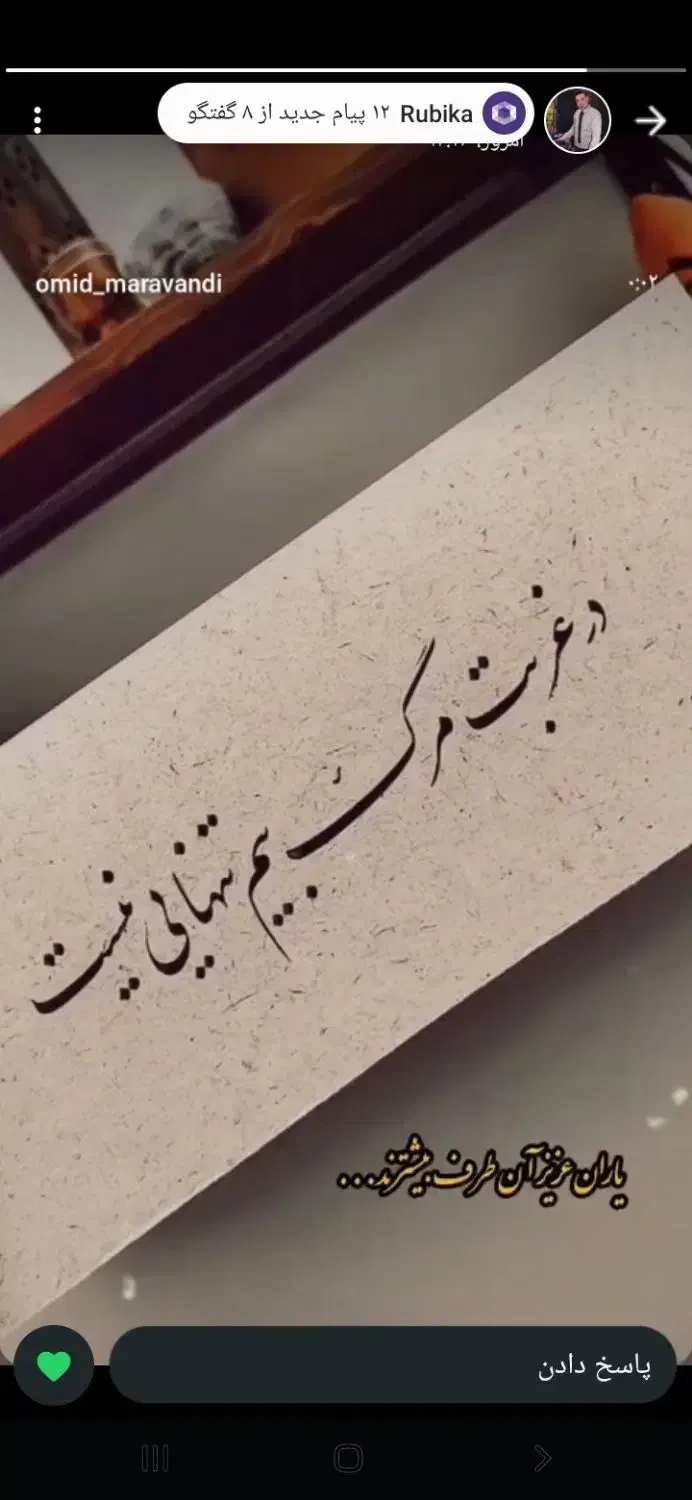 Rubika ۱۲ پیام جدید از ۸ گفتگو
omid_maravandi
در غربت مرگ بیم تنهایی نیست
یاران عزیز آن طرف بیشترند...
پاسخ دادن